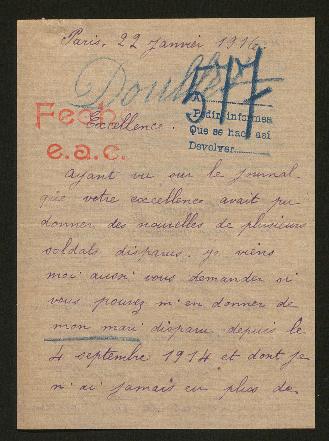 Paris, 22 Janvier 1916.
577
Fecb
e.a.c.
Pedir informes
Que se hace así
Devolver
Excellence.
Ayant vu sur le journal
que votre excellence avait pu
donner des nouvelles de plusieurs
soldats disparus. je viens
moi aussi vous demander si
vous pouvez m'en donner de
mon mari disparu depuis le
4 septembre 1914 et dont je
n'ai jamais eu plus de